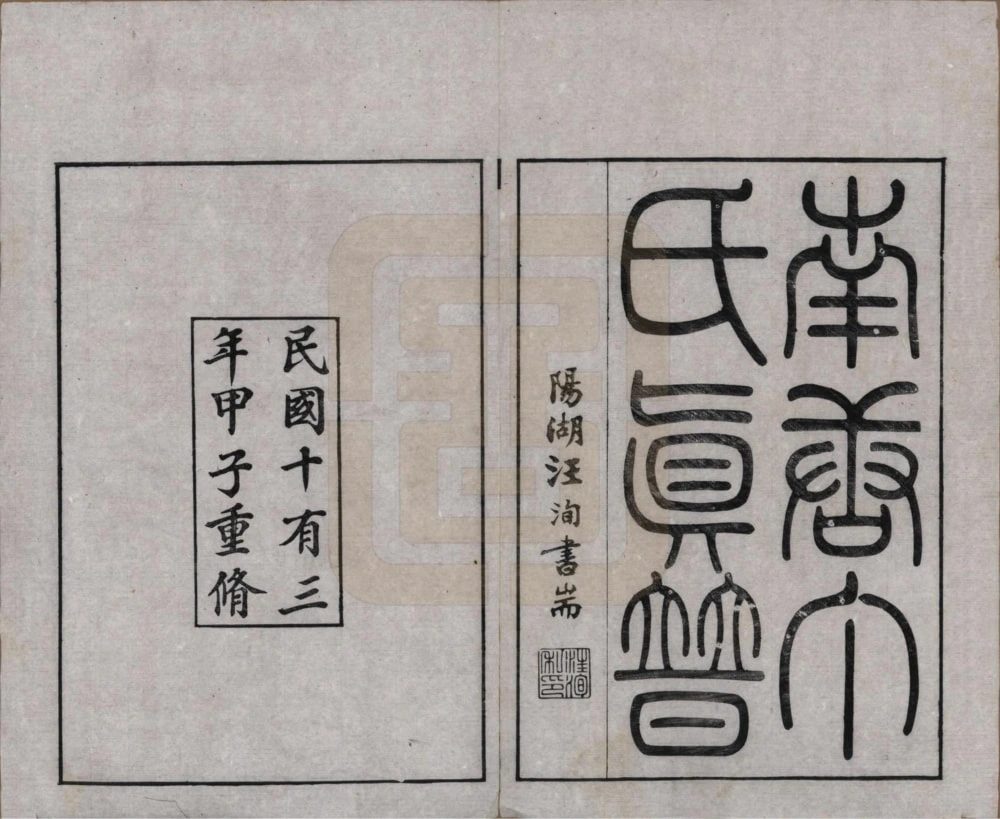 南唐丁
氏眞普
陽湖汪洵書耑
汪洵
私印
民國十有三
年甲子重脩